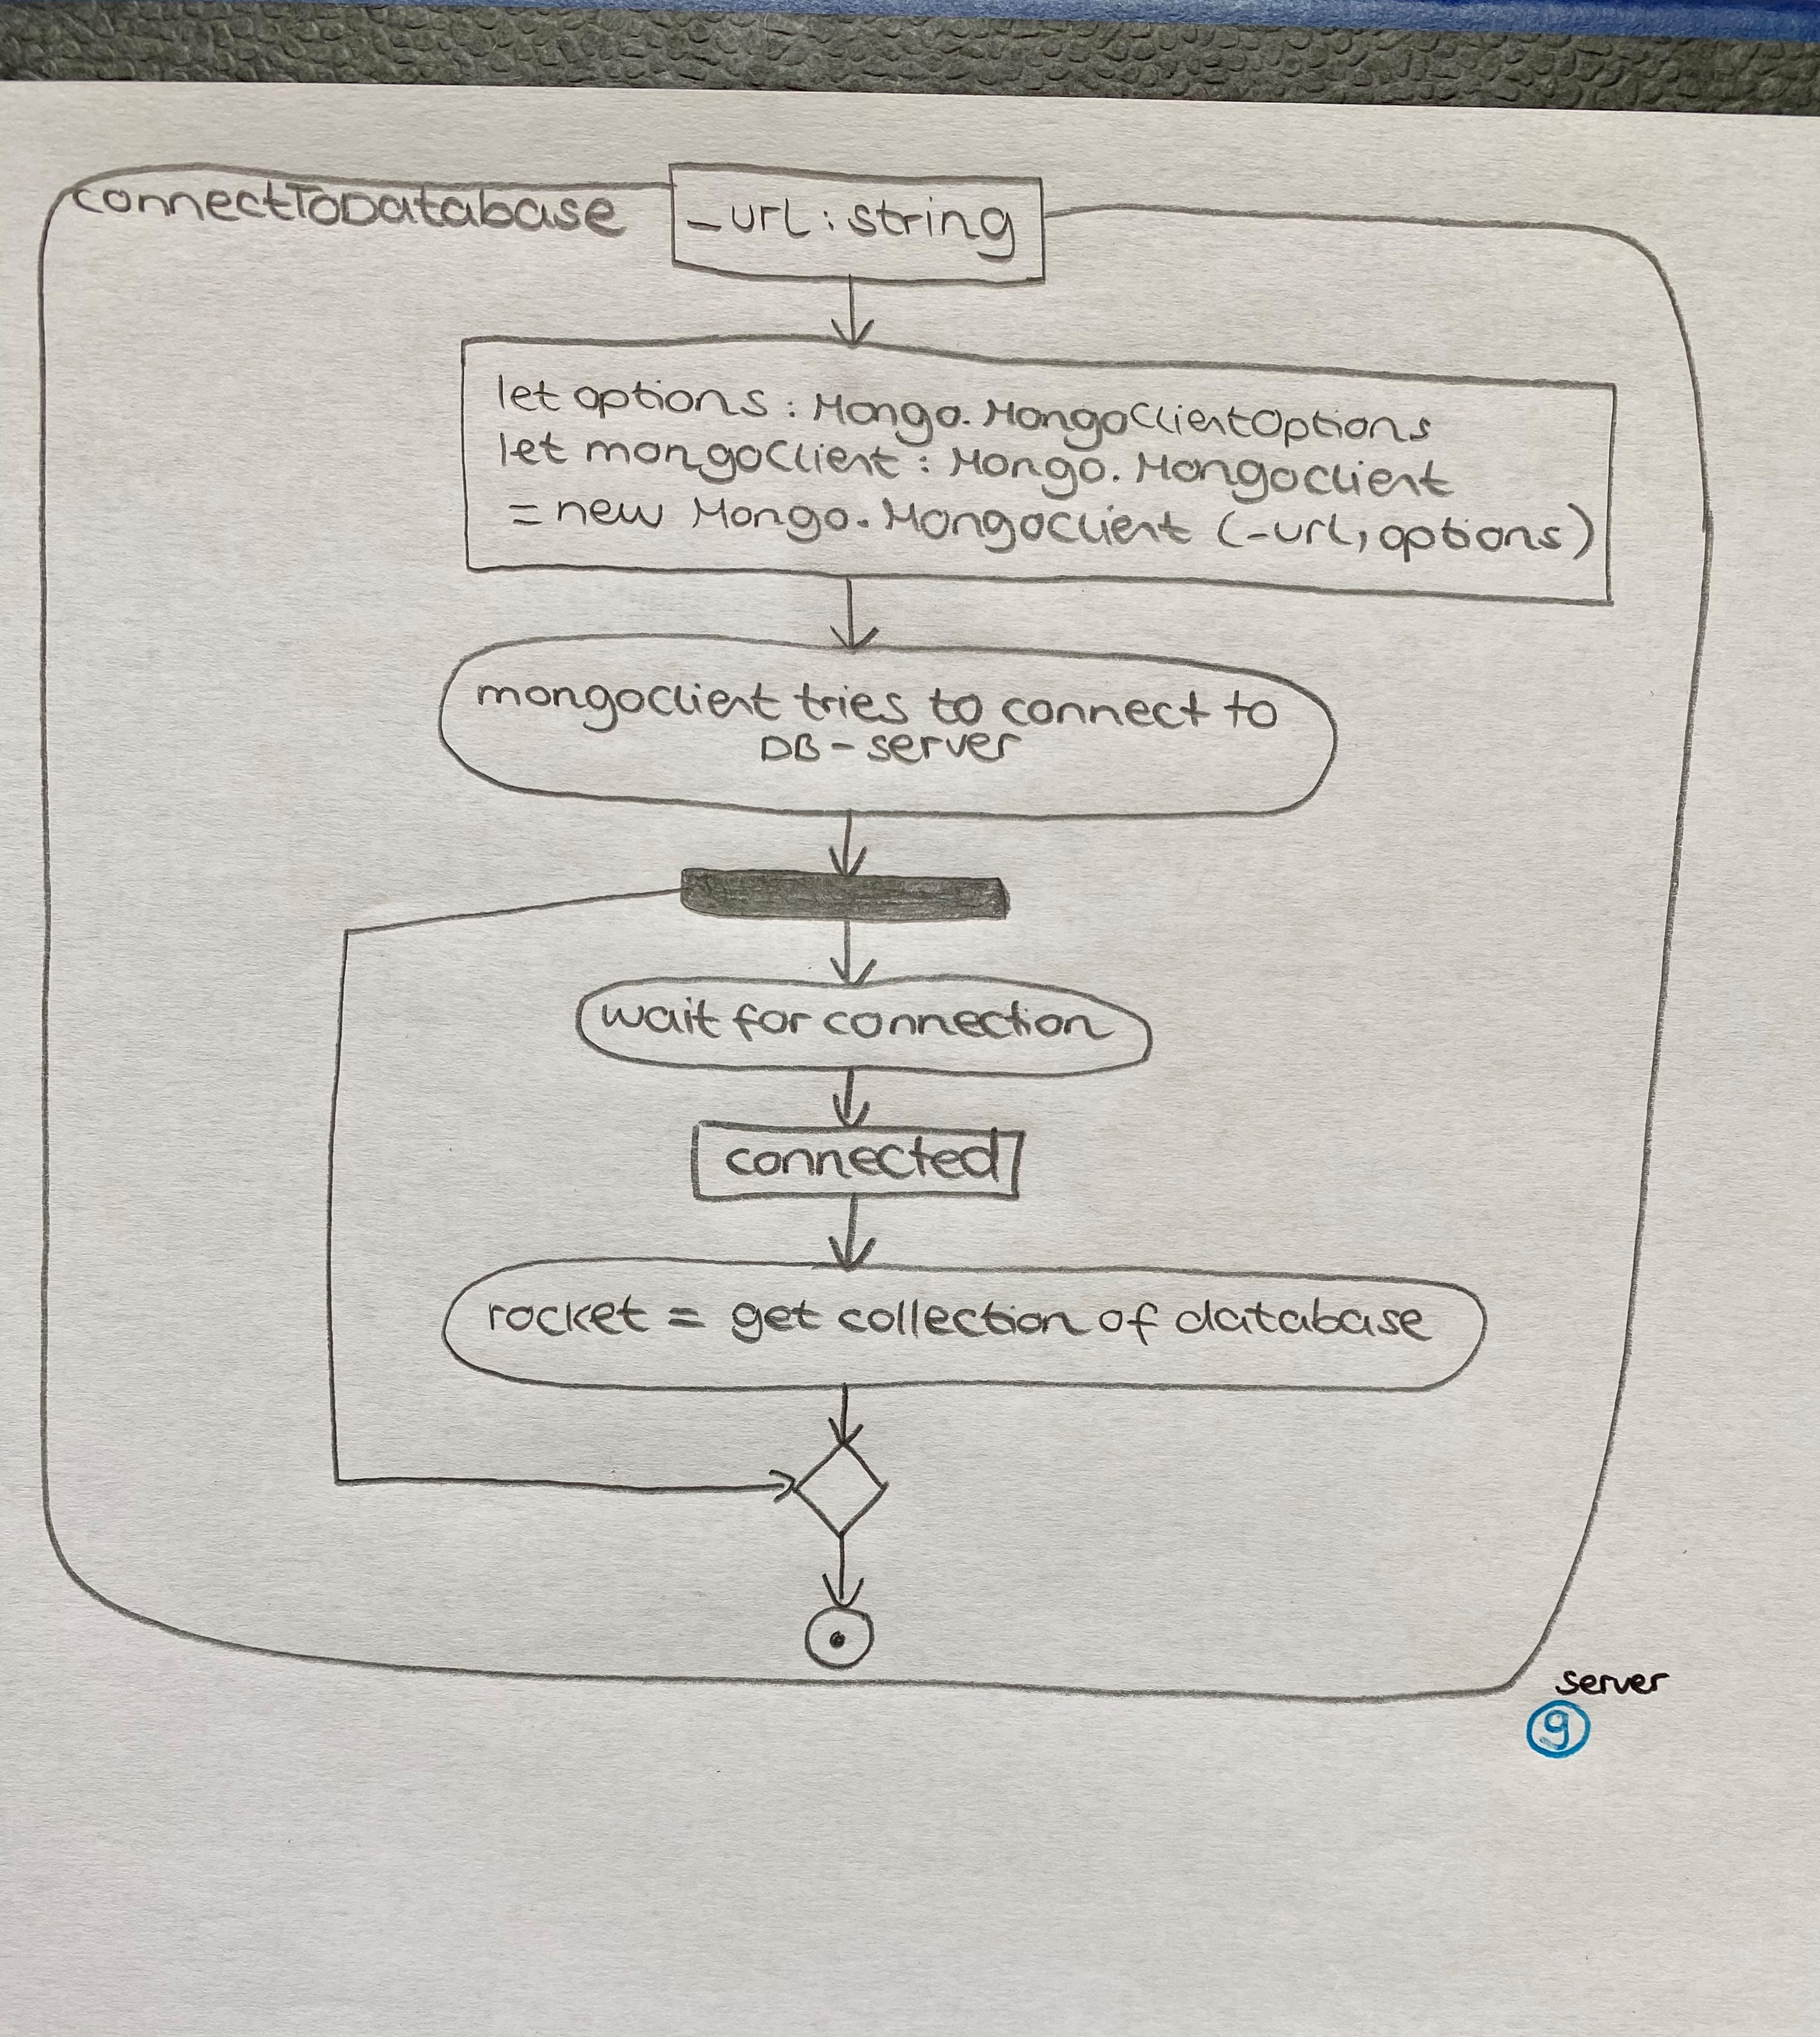 connectToDatabase
_url: string
let options: Mongo.MongoClientOptions
let mongoClient: Mongo.MongoClient
= new Mongo.MongoClient (_url, options)
mongoClient tries to connect to
DB-server
wait for connection
connected
rocket = get collection of database
server
9